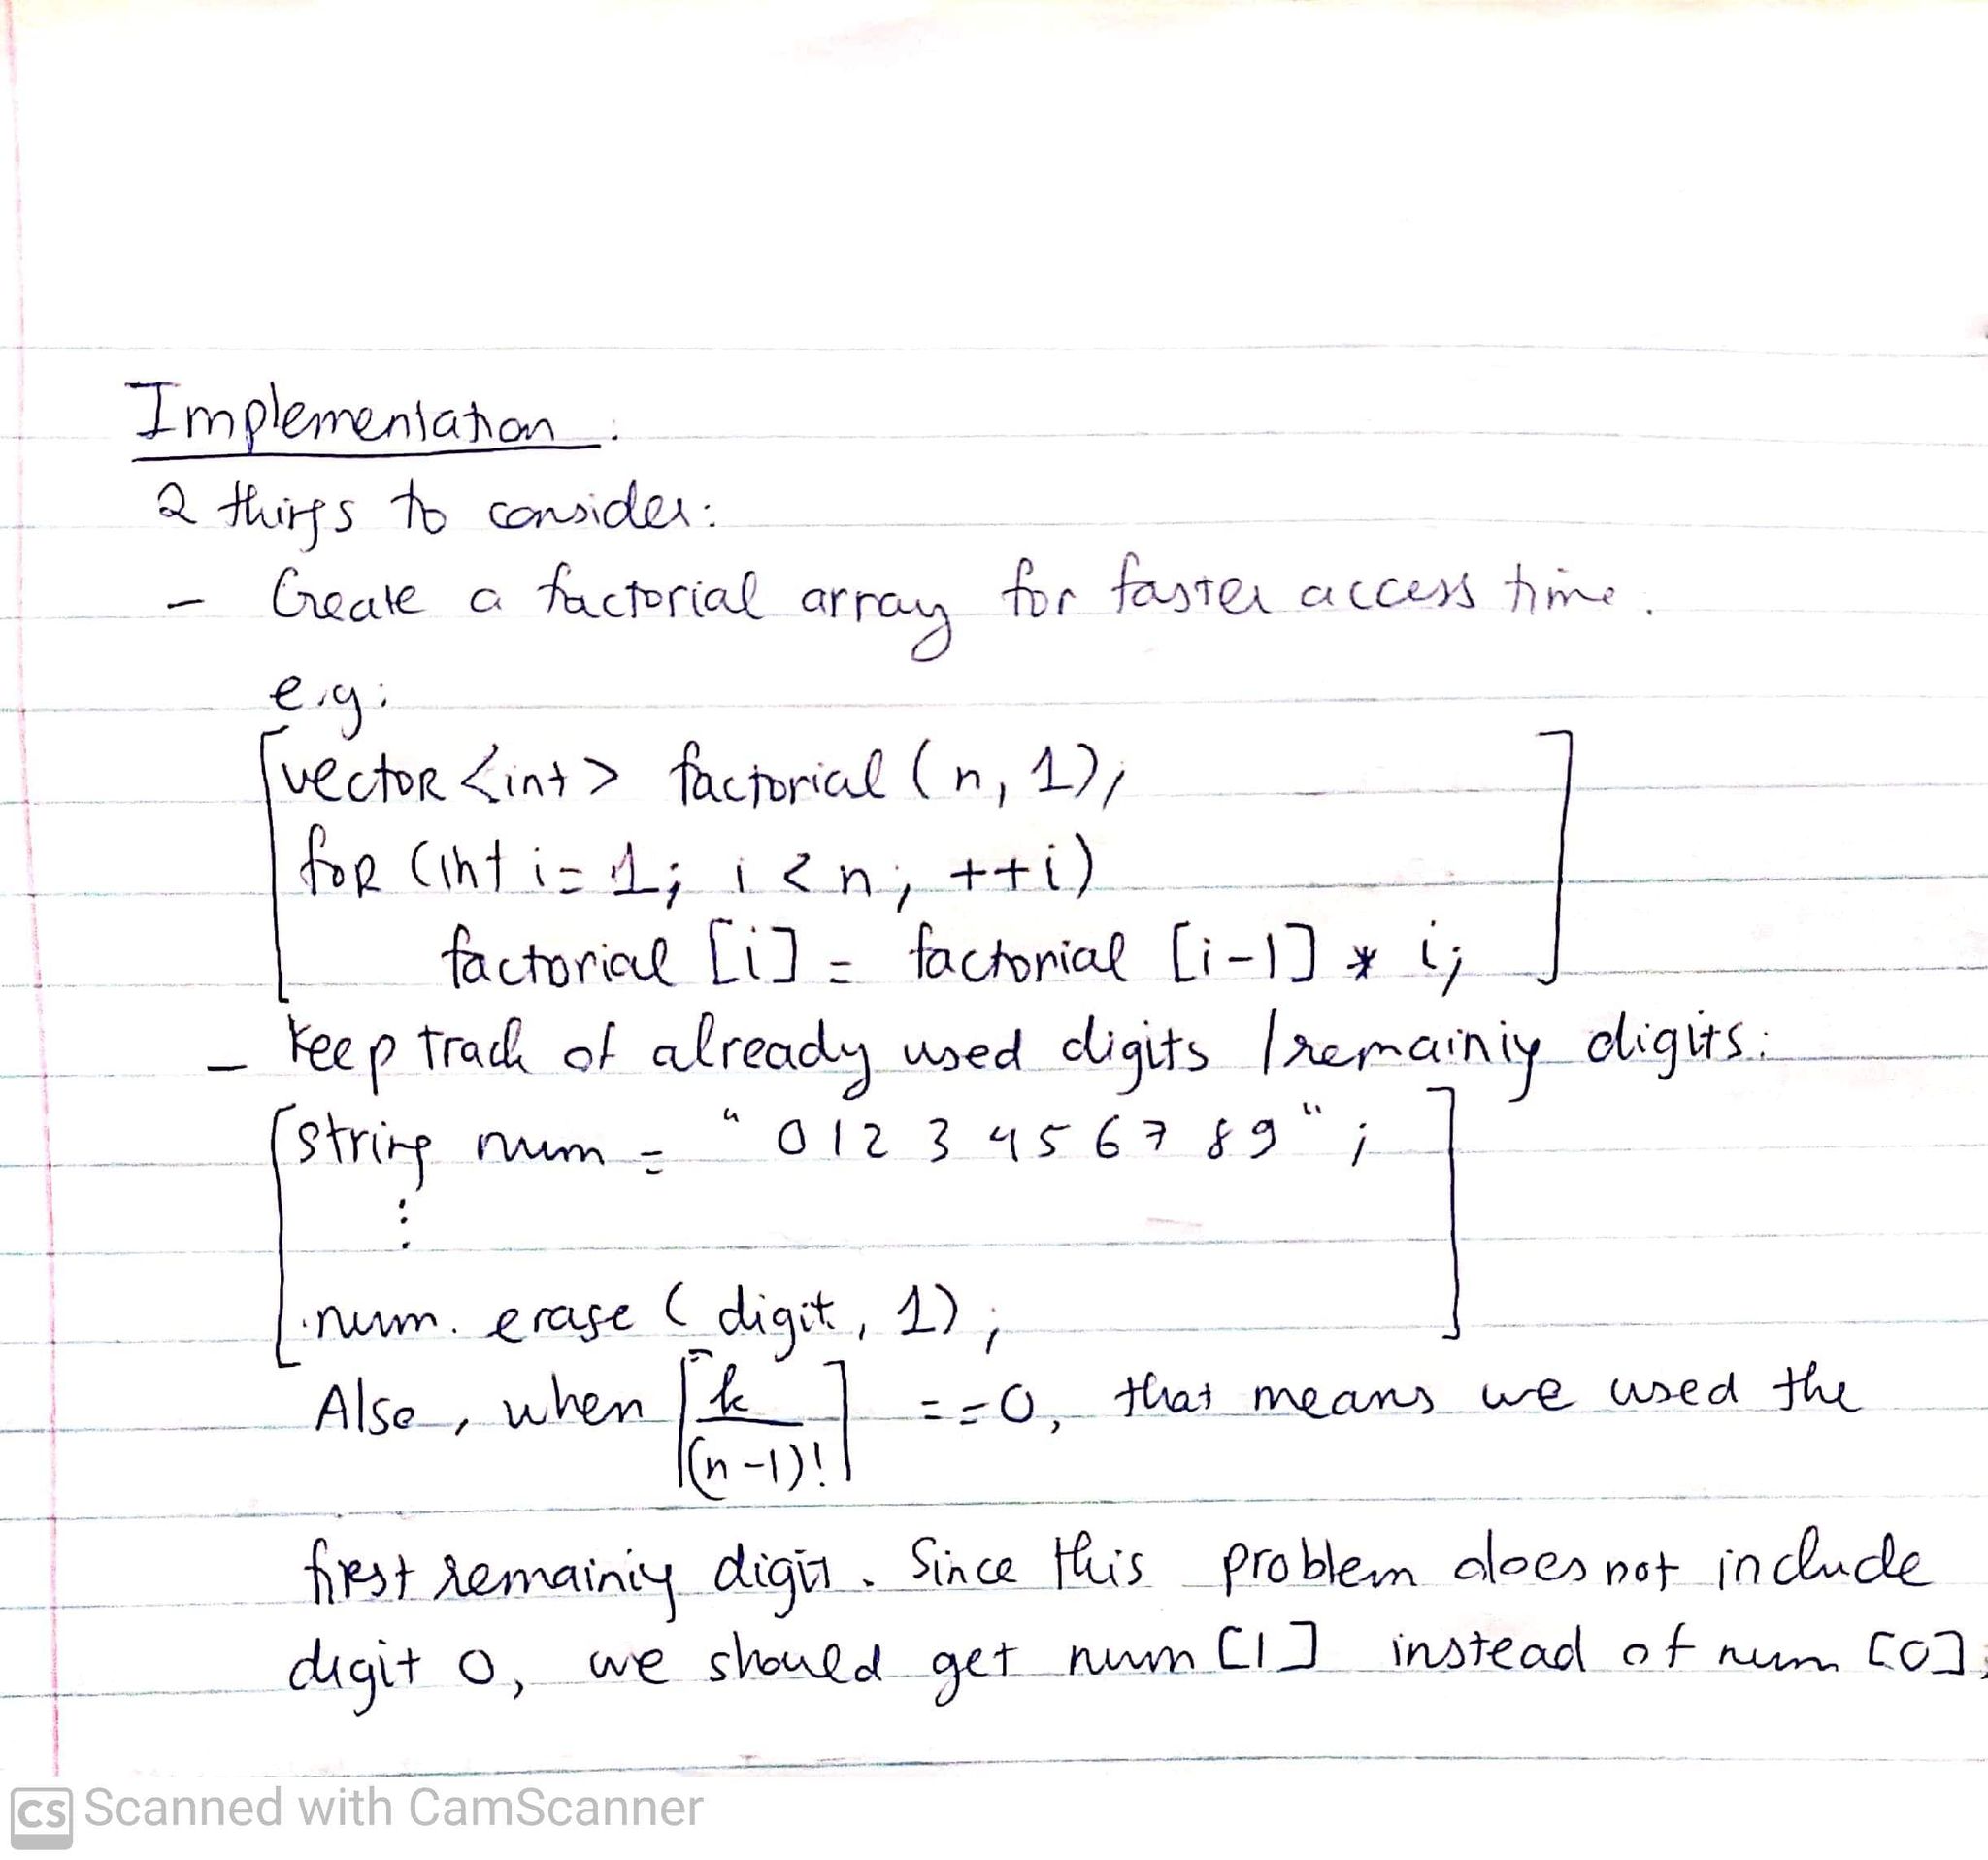 Implementation.
2 things to consider:
- Create a factorial array for faster access time.
e.g:
vector <int> factorial (n, 1);
for (int i = 1; i < n; ++i)
factorial [i] = factorial [i-1] * i;
- Keep track of already used digits / remaining digits:
string num = "0123456789";
⋮
num. erase ( digit, 1);
Also, when [k / (n-1)!] == 0, that means we used the
first remaining digit. Since this problem does not include
digit 0, we should get num [1] instead of num [0];
CS Scanned with CamScanner